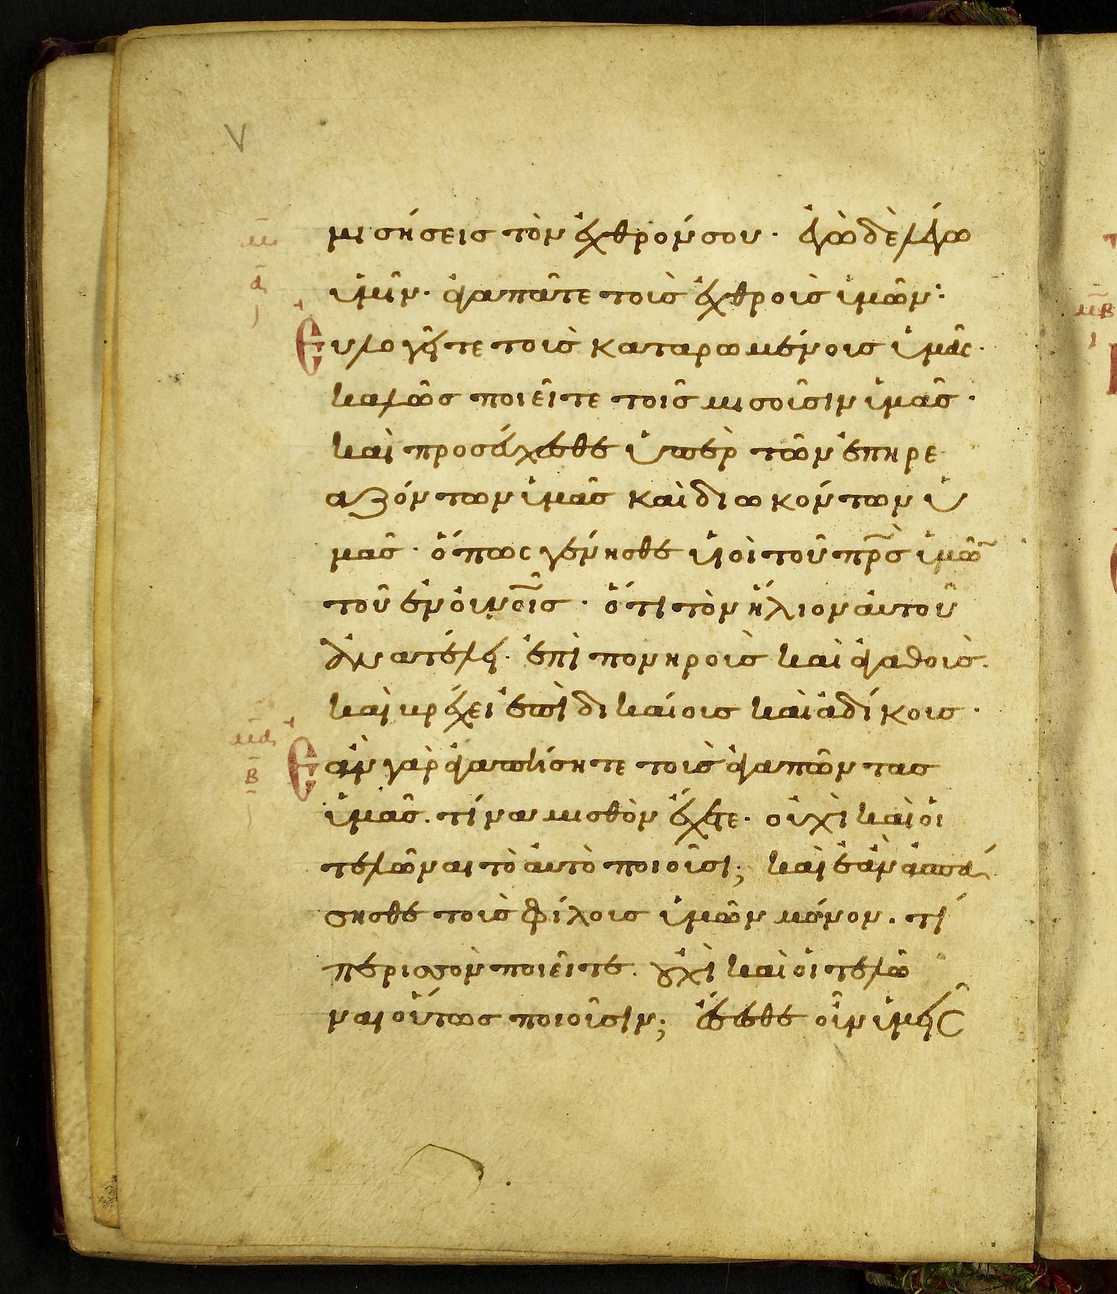 V
μισήσεις τὸν ἐχθρόν σου· ἐγὼ δὲ λέγω
ὑμῖν· ἀγαπᾶτε τοὺς ἐχθροὺς ὑμῶν·
μ̄
ᾱ
Εὐλογεῖτε τοὺς καταρωμένους ὑμᾶς·
καλῶς ποιεῖτε τοῖς μισοῦσιν ὑμᾶς·
καὶ προσεύχεσθε ὑπὲρ τῶν ἐπηρε
αζόντων ὑμᾶς καὶ διωκόντων ὑ
μᾶς· ὅπως γένησθε υἱοὶ τοῦ πρ̄ς ὑμῶ
τοῦ ἐν οὐνοῖς· ὅτι τὸν ἥλιον αὐτοῦ
ἀνατέλει· ἐπὶ πονηροὺς καὶ ἀγαθοὺς.
καὶ βρέχει ἐπὶ δικαίους καὶ ἀδίκους·
μ̄ᾱ
β̄
Ἐὰν γὰρ ἀγαπήσητε τοὺς ἀγαπῶντας
ὑμᾶς. τίνα μισθὸν ἔχετε· οὐχὶ καὶ οἱ
τελῶναι τὸ αὐτὸ ποιοῦσι; καὶ ἐὰν ἀσπά
σησθε τοὺς φίλους ὑμῶν μόνον. τί
περισσὸν ποιεῖτε. οὐχὶ καὶ οἱ τελῶ
ναι οὕτως ποιοῦσιν; ἔσεσθε οὖν ὑμεῖς
μ̄β̄